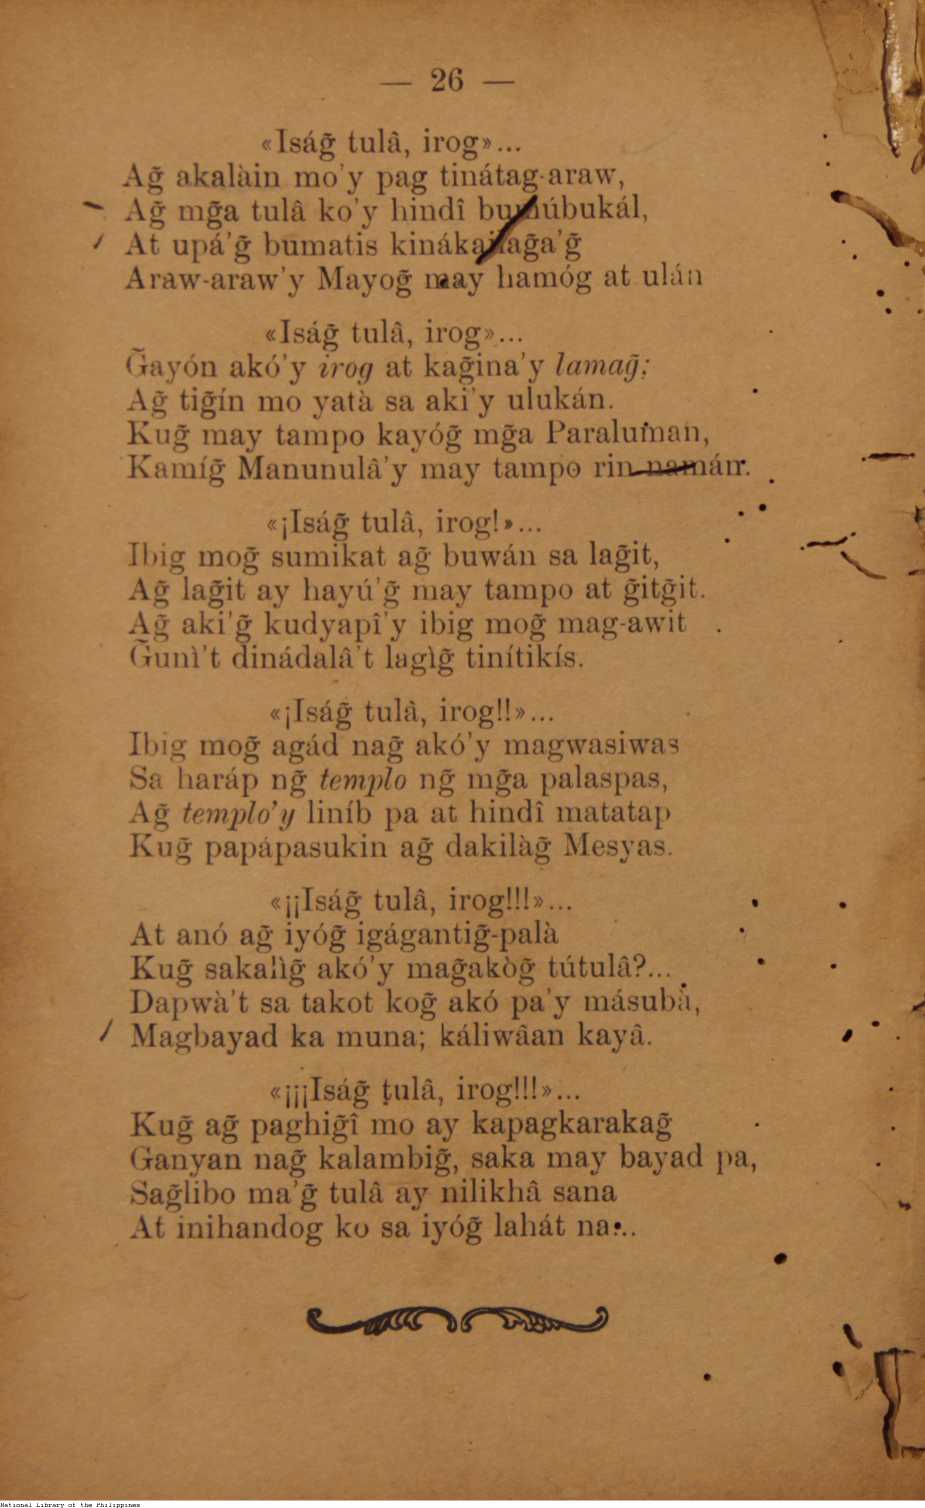 — 26 —
«Iság̃ tulâ, irog»...
Ag̃ akalàin mo'y pag tinátag-araw,
Ag̃ mg̃a tulâ ko'y hindî bumúbukál,
At upá'g̃ bumatis kinákailag̃a'g̃
Araw-araw'y Mayog̃ may hamóg at ulán
«Iság̃ tulâ, irog»...
G̃ayón akó'y irog at kag̃ina'y lamag̃;
Ag̃ tig̃ín mo yatà sa aki'y ulukán.
Kug̃ may tampo kayóg̃ mg̃a Paraluman,
Kamíg̃ Manunulâ'y may tampo rin namán.
«¡Iság̃ tulâ, irog!»...
Ibig mog̃ sumikat ag̃ buwán sa lag̃it,
Ag̃ lag̃it ay hayú'g̃ may tampo at g̃itg̃it.
Ag̃ aki'g̃ kudyapî'y ibig mog̃ mag-awit
G̃unì't dinádalâ't lagìg̃ tinítikís.
«¡Iság̃ tulâ, irog!!»...
Ibig mog̃ agád nag̃ akó'y magwasiwas
Sa haráp ng̃ templo ng̃ mg̃a palaspas,
Ag̃ templo'y liníb pa at hindî matatap
Kug̃ papápasukin ag̃ dakilàg̃ Mesyas.
«¡¡Iság̃ tulâ, irog!!!»...
At anó ag̃ iyóg̃ igágantig̃-palà
Kug̃ sakalìg̃ akó'y mag̃akòg̃ tútulâ?...
Dapwà't sa takot kog̃ akó pa'y másubà,
Magbayad ka muna; káliwâan kayâ.
«¡¡¡Iság̃ tulâ, irog!!!»...
Kug̃ ag̃ paghig̃î mo ay kapagkarakag̃
Ganyan nag̃ kalambig̃, saka may bayad pa,
Sag̃libo ma'g̃ tulâ ay nilikhâ sana
At inihandog ko sa iyóg̃ lahát na...
National Library of the Philippines